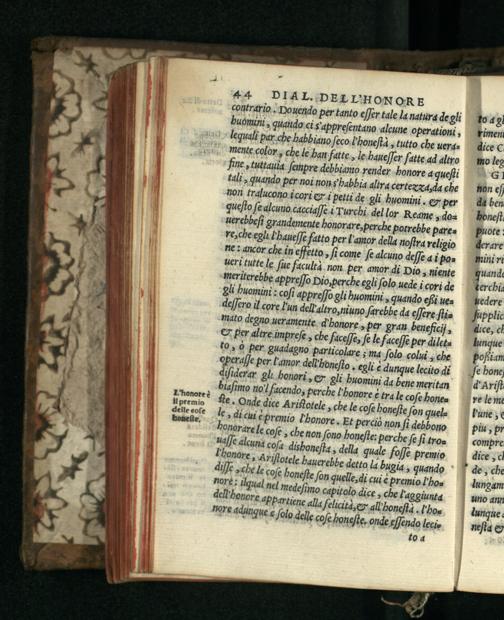 44 DIAL. DELL'HONORE
contrario. Douendo per tanto esser tale la natura de gli
huomini, quando ci s'appresentano alcune operationi,
lequali par che habbiano seco l'honestà, tutto che uera-
mente color, che le han fatte, le hauesser fatte ad altro
fine, tuttauia sempre debbiamo render honore a questi
tali, quando per noi non s'habbia altra certezza, da che
non tralucono i cori & i petti de gli huomini. & per
questo se alcuno cacciasse i Turchi del lor Reame, do-
uerebbesi grandemente honorare, perche potrebbe pare-
re, che egli l'hauesse fatto per l'amor della nostra religio
ne: ancor che in effetto, si come se alcuno desse a i po-
ueri tutte le sue facultà non per amor di Dio, niente
meriterebbe appresso Dio, perche egli solo uede i cori de
gli huomini: così appresso gli huomini, quando essi ue-
dessero il core l'un dell'altro, niuno sarebbe da essere sti-
mato degno ueramente d'honore, per gran beneficij,
& per altre imprese, che facesse, se le facesse per dilet-
to, ò per guadagno particolare; ma solo colui, che
operasse per l'amor dell'honesto, egli è dunque lecito di
disiderar gli honori, & gli huomini da bene meritan
biasimo no'l facendo, perche l'honore è tra le cose hone-
ste. Onde dice Aristotele, che le cose honeste son quel-
le, di cui è premio l'honore. Et perciò non si debbono
honorare le cose, che non sono honeste: perche se si tro-
uasse alcuna cosa dishonesta, della quale fosse premio
l'honore, Aristotele hauerebbe detto la bugia, quando
disse, che le cose honeste son quelle, di cui è premio l'ho-
nore: ilqual nel medesimo capitolo dice, che l'aggiunta
dell'honore appartiene alla felicità, & all'honestà. l'ho-
nore adunque è solo delle cose honeste. onde essendo leci-
to a
L'honore è
il premio
delle cose
honeste.
to a gl
dice C
mo leg
non ess
da ben
honest
puote:
mini ri
quand
uedere
supplic
dice, ch
lunque
d'Arist
re le me
l'une, e
piu, pr
compre
dice, ch
de, che
lungam
uno anz
lunque
nesta &